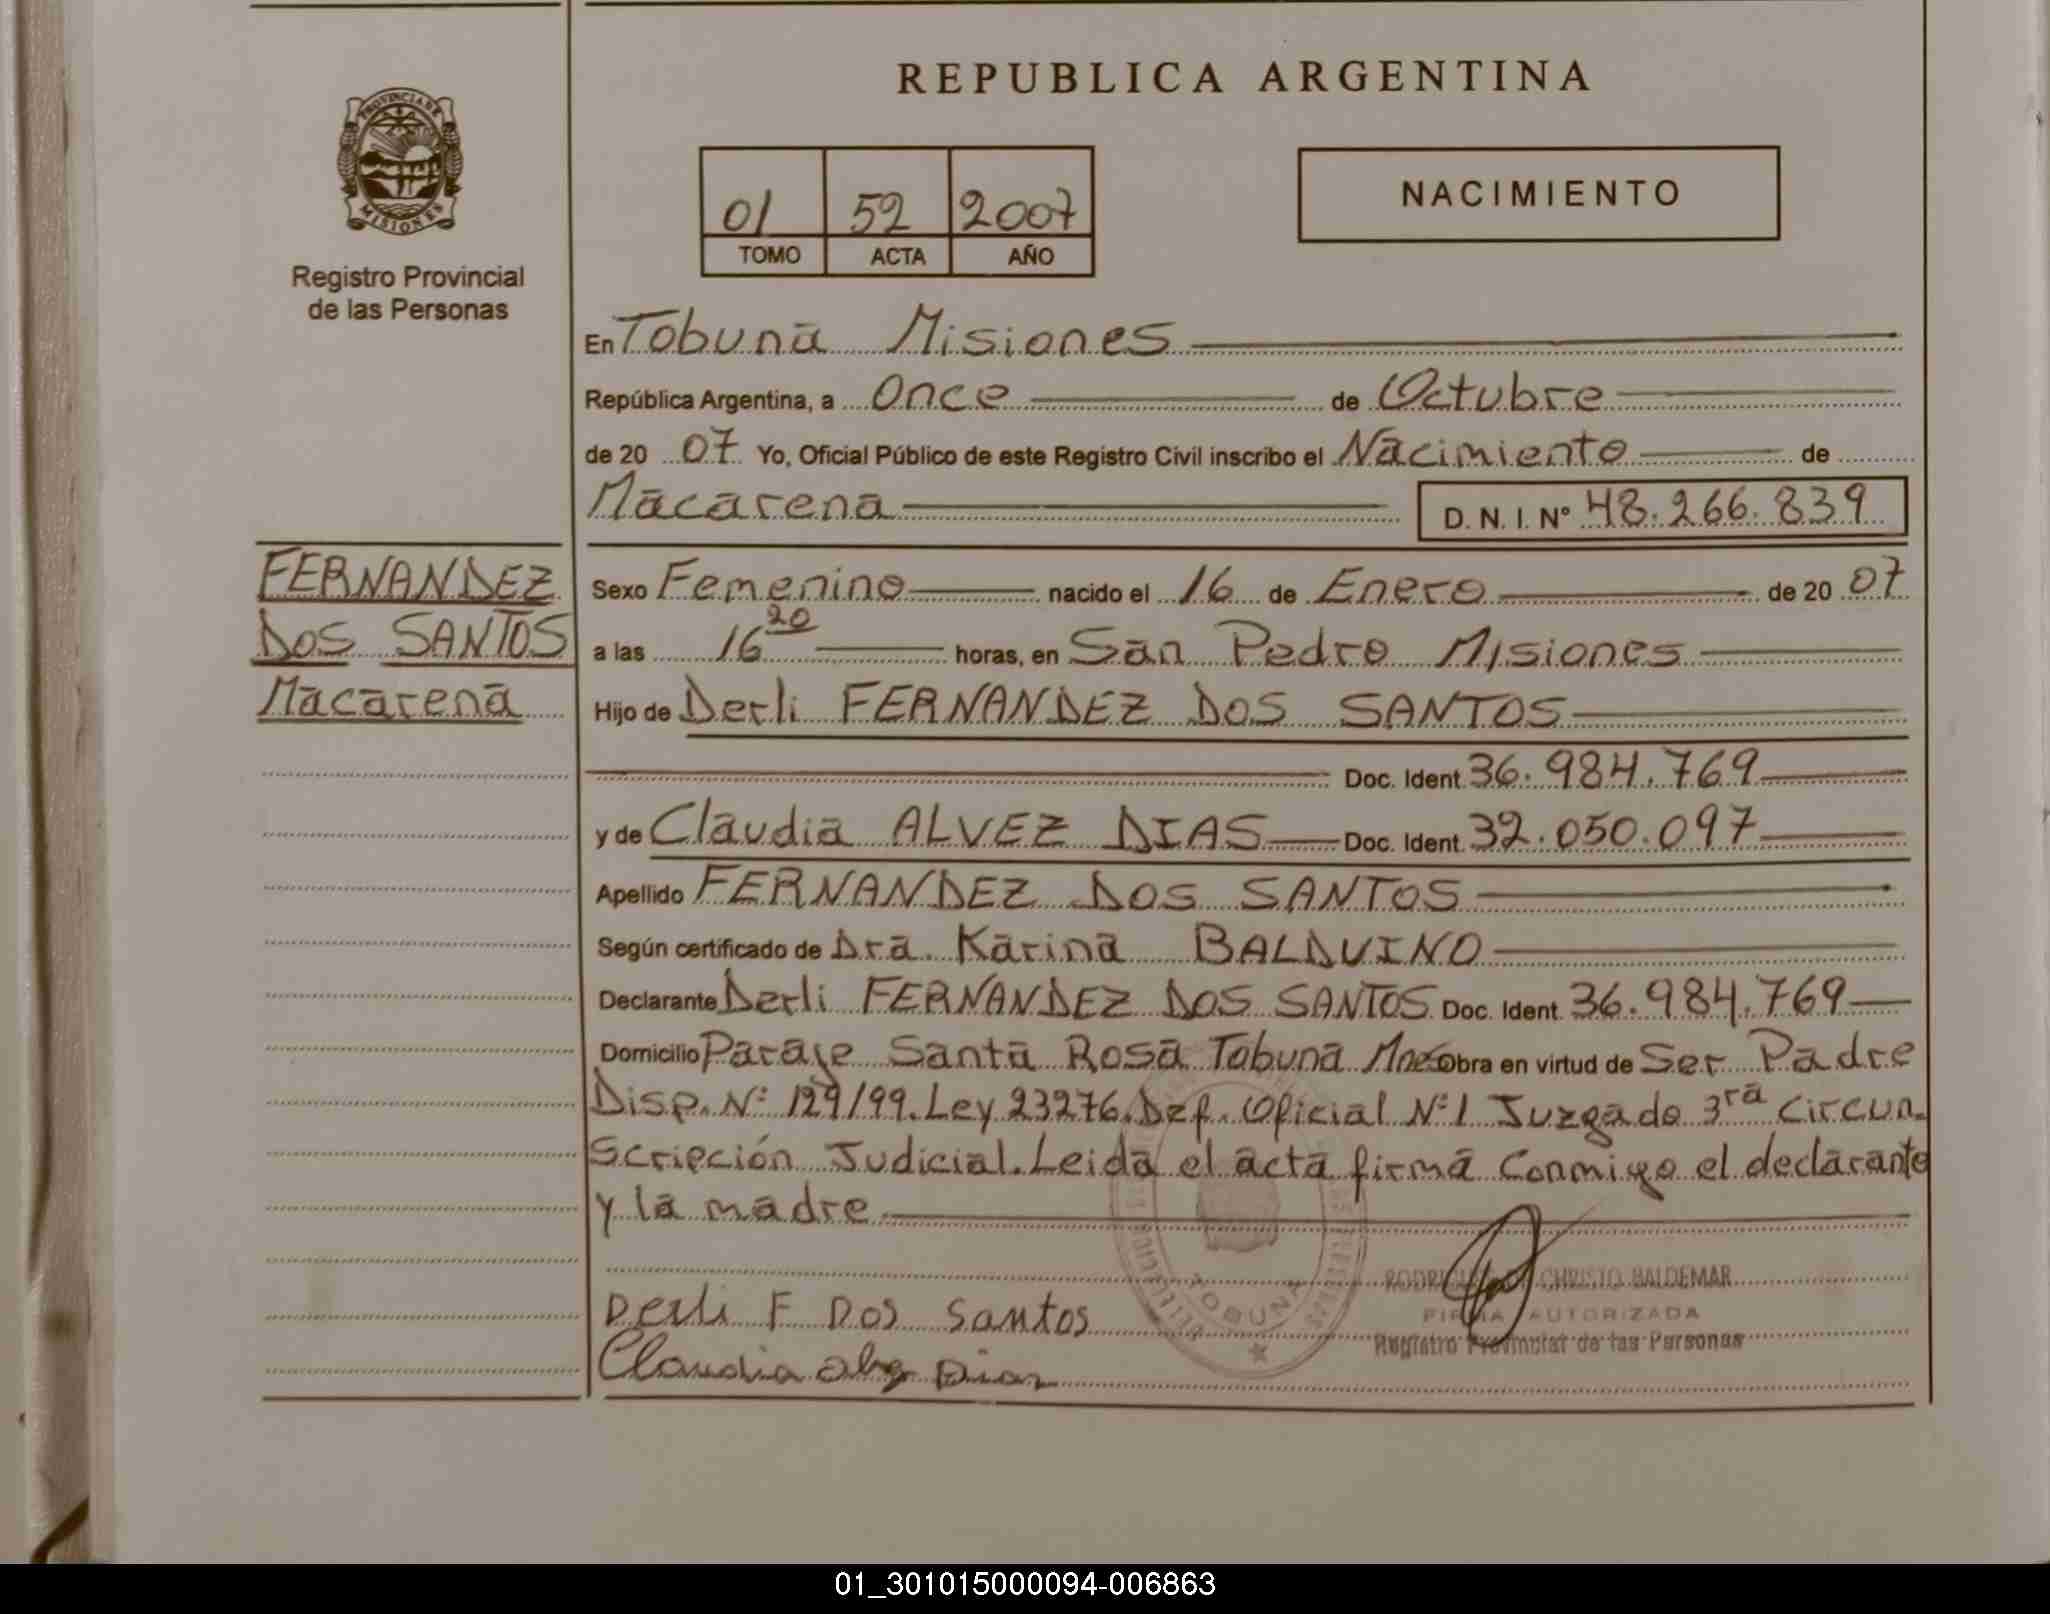 REPUBLICA ARGENTINA
PROVINCIA DE
MISIONES
Registro Provincial
de las Personas
01 52 2007
TOMO ACTA AÑO
NACIMIENTO
En Tobuna Misiones
República Argentina, a Once de Octubre
de 20 07 Yo, Oficial Público de este Registro Civil inscribo el Nacimiento de
Macarena D. N. I. Nº 48.266.839
FERNANDEZ
DOS SANTOS
Macarena
Sexo Femenino nacido el 16 de Enero de 20 07
a las 16 20 horas, en San Pedro Misiones
Hijo de Derli FERNANDEZ DOS SANTOS
Doc. Ident. 36.984.769
y de Claudia ALVEZ DIAS Doc. Ident. 32.050.097
Apellido FERNANDEZ DOS SANTOS
Según certificado de Dra. Karina BALDUINO
Declarante Derli FERNANDEZ DOS SANTOS Doc. Ident. 36.984.769
Domicilio Paraje Santa Rosa Tobuna Mnes Obra en virtud de Ser Padre
Disp. Nº 129/99. Ley 23276. Def. Oficial Nº 1 Juzgado 3ra Circun-
scripción Judicial. Leida el acta firma conmigo el declarante
y la madre
Derli F Dos Santos
Claudia Dias
CHRISTO BALDEMAR
FIRMA AUTORIZADA
Registro Provincial de las Personas
TOBUNA
01_301015000094-006863